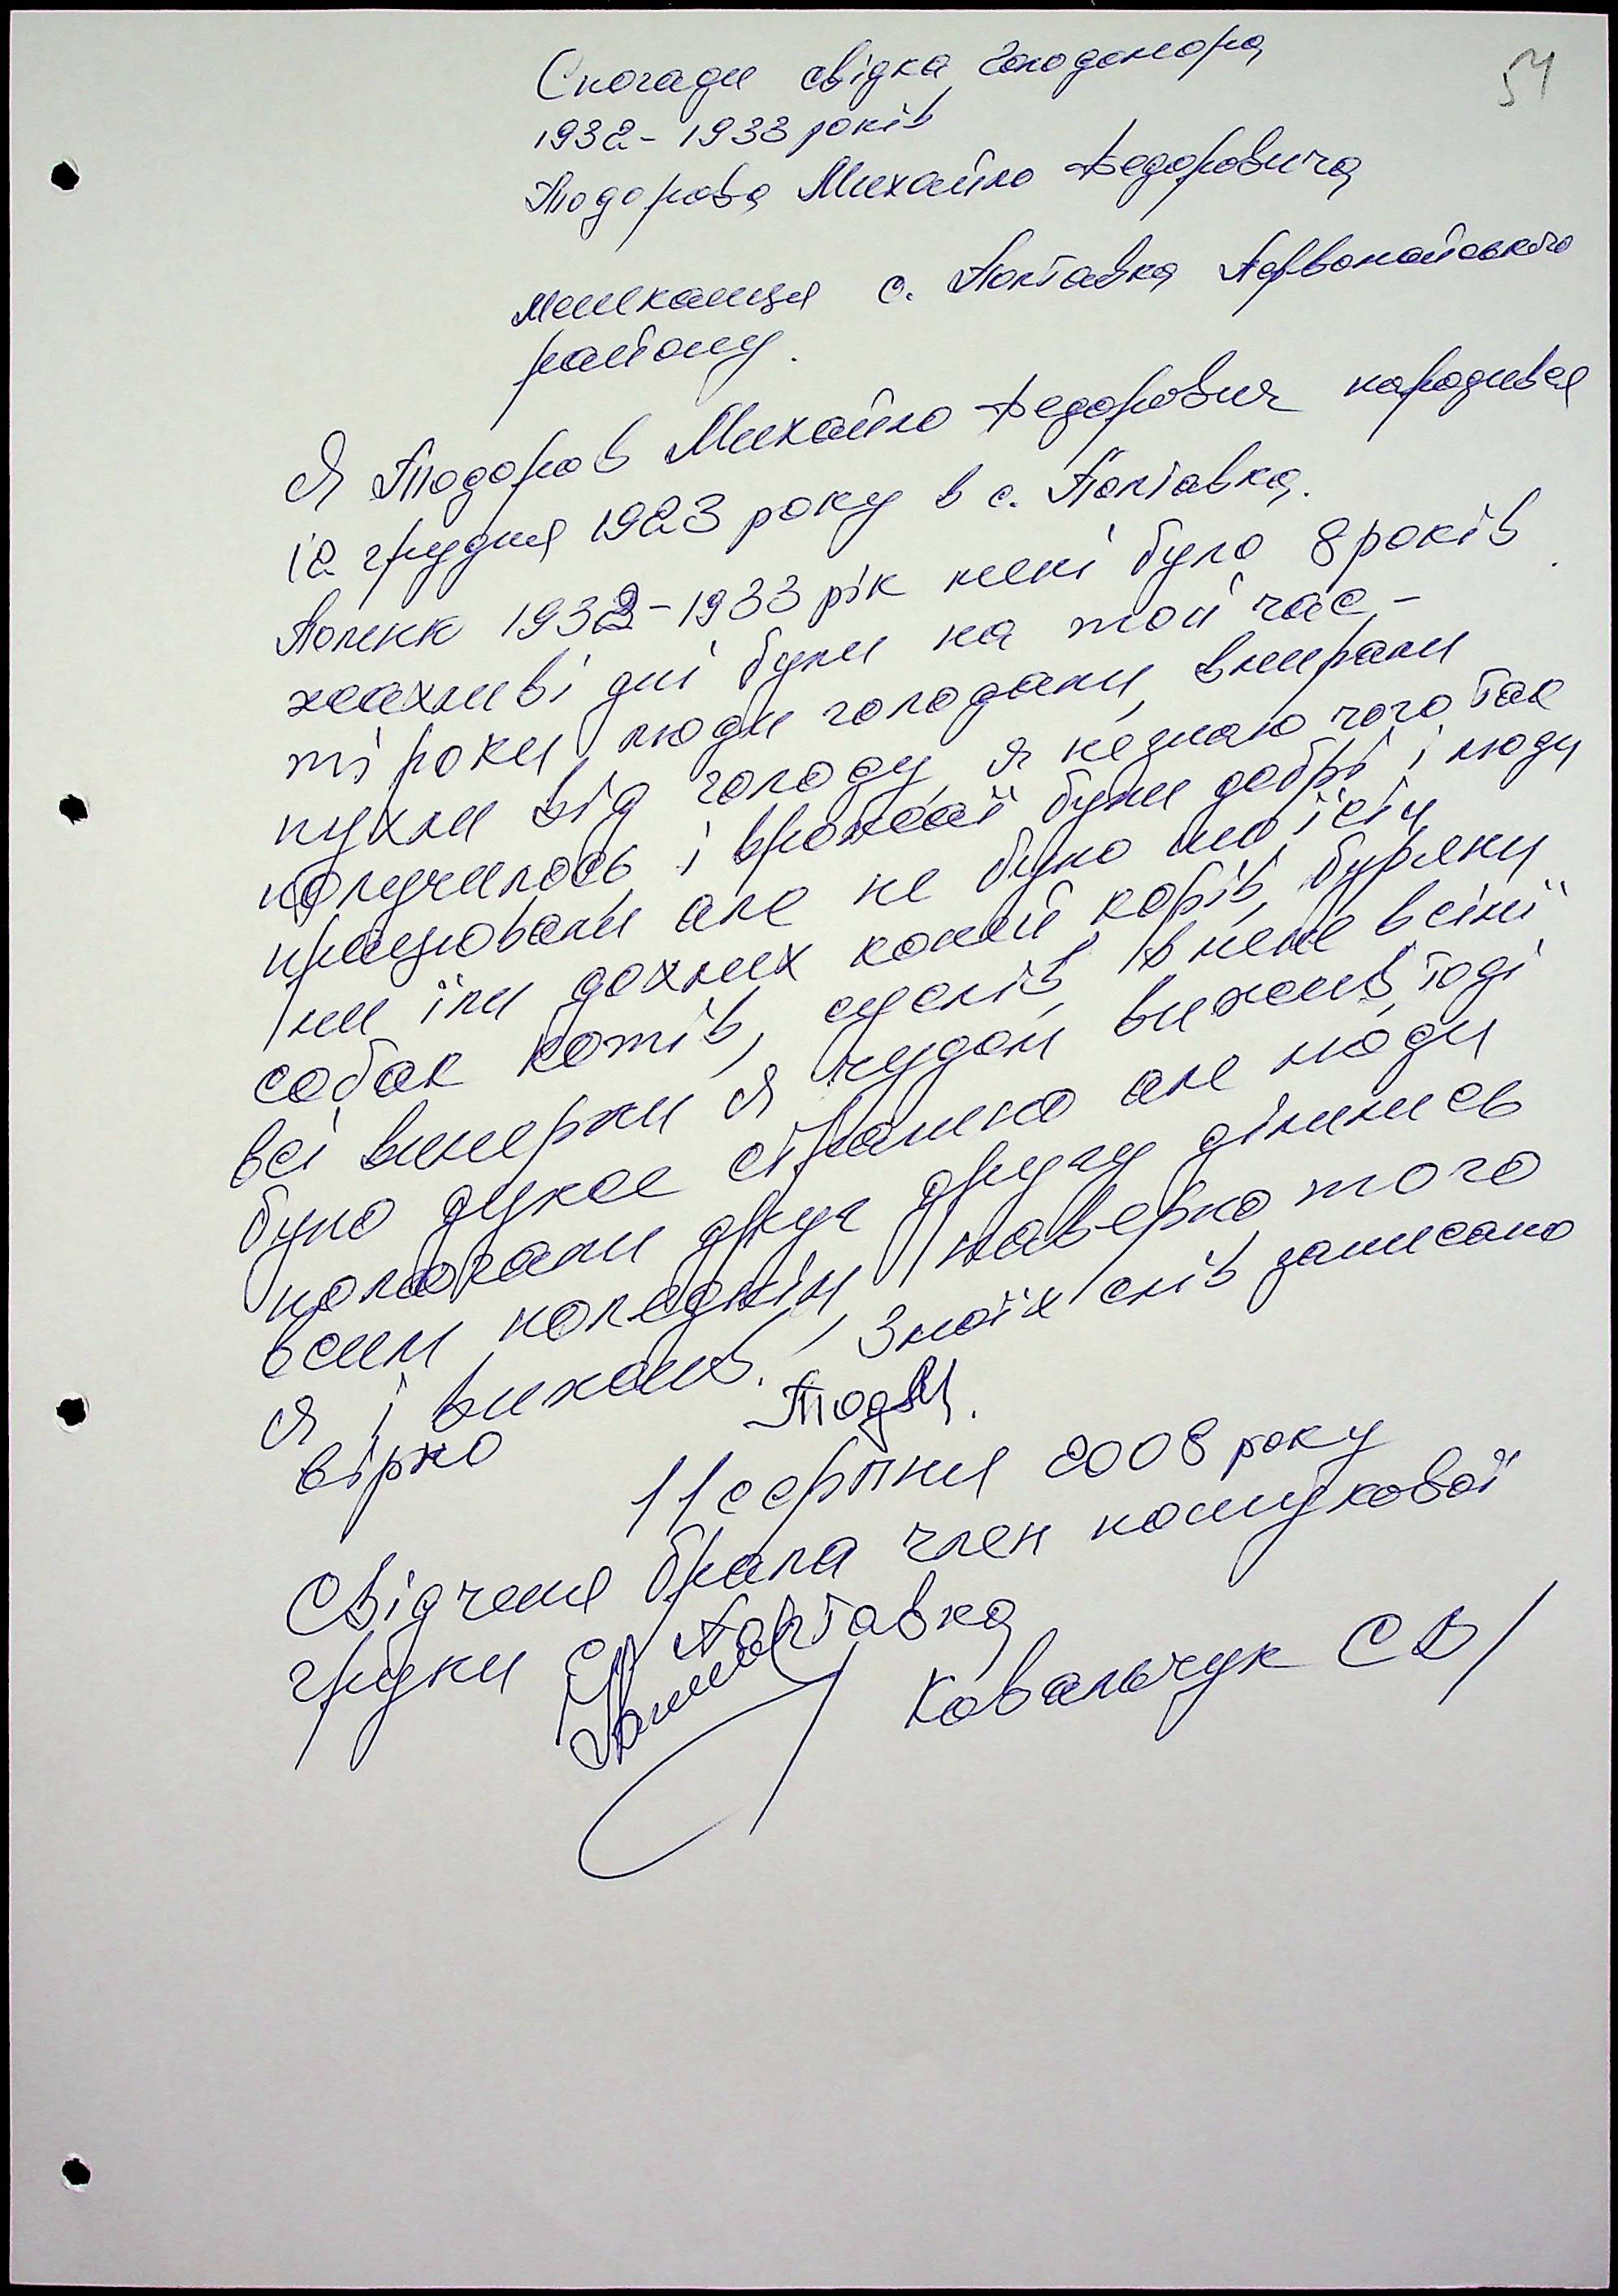 51
Спогади свідка Голодомора
1932-1933 років
Тодорова Михайло Федоровича
мешканця с. Полтавка Первомайського
району.
Я Тодоров Михайло Федорович народився
12 грудня 1923 року в с. Полтавка.
1932-1933 рік мені було 8 років
жахливі дні були на той час -
ті роки люди голодали, вмирали
пухли від голоду, я незнаю чого так
получилось і врожаї були добрі і люди
працювали але не було що їсти
ми їли дохлих коней корів, буряки
собак котів, в мене всі
всі вмерли я чудом вижив, тоді
було дуже страшно але люди
помогали друг другу ділились
всим последнім наверно того
я і вижив. Змоїх слів записано
вірно Тод М.
11 серпня 2008 року
Свідченя брала член пошукової
групи с. Полтавка
Ковальчук С В